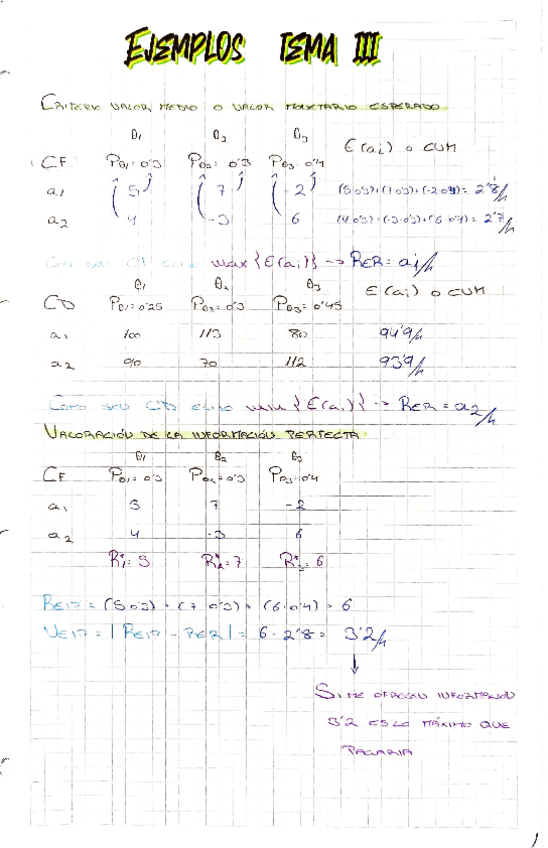 EJEMPLOS TEMA III
CRITERIO VALOR MEDIO O VALOR MONETARIO ESPERADO
θ1 θ2 θ3 E(ai) o CUM
CF Pθ1=0'3 Pθ2=0'3 Pθ3=0'4
a1 5 7 -2 (5·0'3)+(7·0'3)+(-2·0'4)= 2'8//
a2 4 -3 6 (4·0'3)+(-3·0'3)+(6·0'4)= 2'7//
COMO SON CF ELIJO max{E(ai)} -> RER = a1//
θ1 θ2 θ3 E(ai) o CUM
CD Pθ1=0'25 Pθ2=0'3 Pθ3=0'45
a1 100 113 80 94'9//
a2 90 70 112 93'9//
COMO SON CD ELIJO min{E(ai)} -> RER = a2//
VALORACIÓN DE LA INFORMACIÓN PERFECTA
θ1 θ2 θ3
CF Pθ1=0'3 Pθ2=0'3 Pθ3=0'4
a1 5 7 -2
a2 4 -3 6
R*1=5 R*2=7 R*3=6
REIP = (5·0'3) + (7·0'3) + (6·0'4) = 6
VEIP = |REIP - RER| = 6 - 2'8 = 3'2//
SI ME OFRECEN INFORMACIÓN
3'2 ES LO MÁXIMO QUE
PAGARIA